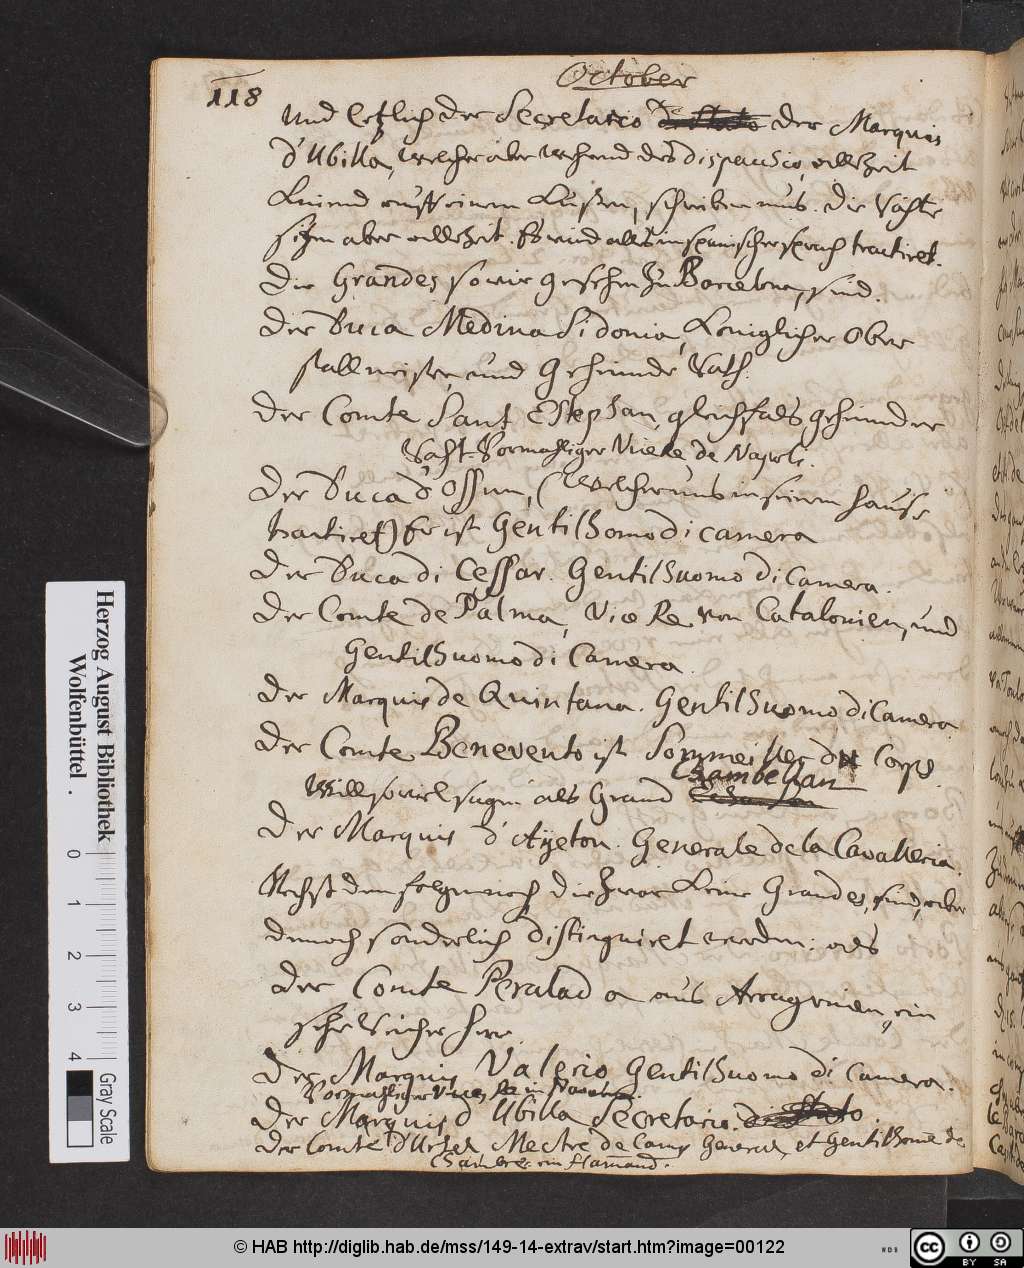 118
October
und letzlich der Secretario di Stato der Marquis
d'Ubilla, welcher aber wehrend des dispacio, allezeit
kniend auff einem Küßen, schreiben mus. die Rähte
sitzen aber allezeit. Es wird alles in spanischer sprach tractiret.
Die Grandes so wir gesehen zu Barcelona, sind.
Der Duca Medina Sidonia, Königlicher Ober
stallmeister und Geheimde Rath.
Der Comte Sant Estephan, gleichfals geheimder
Raht. Vormahliger Vice Re de Napoli.
Der Duca d'Ossun, (welcher uns in seinem hause
tractiret) Er ist Gentilhomo di camera
Der Duca di Cessar. Gentilhuomo di Camera.
Der Comte de Palma, Vice Re von Catalonien, und
Gentilhuomo di Camera.
Der Marquis de Quintana. Gentilhuomo di Camera.
Der Comte Benevento ist Sommeiller du Corps
will so viel sagen als Grand Chambellan
Der Marquis d'Ayeton. Generale de la Cavalleria.
Nechst dem folgen noch die zwar keine Grandes, sind, aber
dennoch sonderlich distinguiret werden. als
Der Comte Peralada aus Arragonien, ein
sehr reicher herr.
Der Marquis Valerio Gentilhuomo di Camera.
Vormahliger Vice Re in
Der Marquis d'Ubilla Secretario di Stato.
Der Comte d'Ursel Mestre de Camp General, et Gentilhome de
Chambre. ein flamand.
Herzog August Bibliothek
Wolfenbüttel.
0 1 2 3 4
Gray Scale
© HAB http://diglib.hab.de/mss/149-14-extrav/start.htm?image=00122
cc BY SA